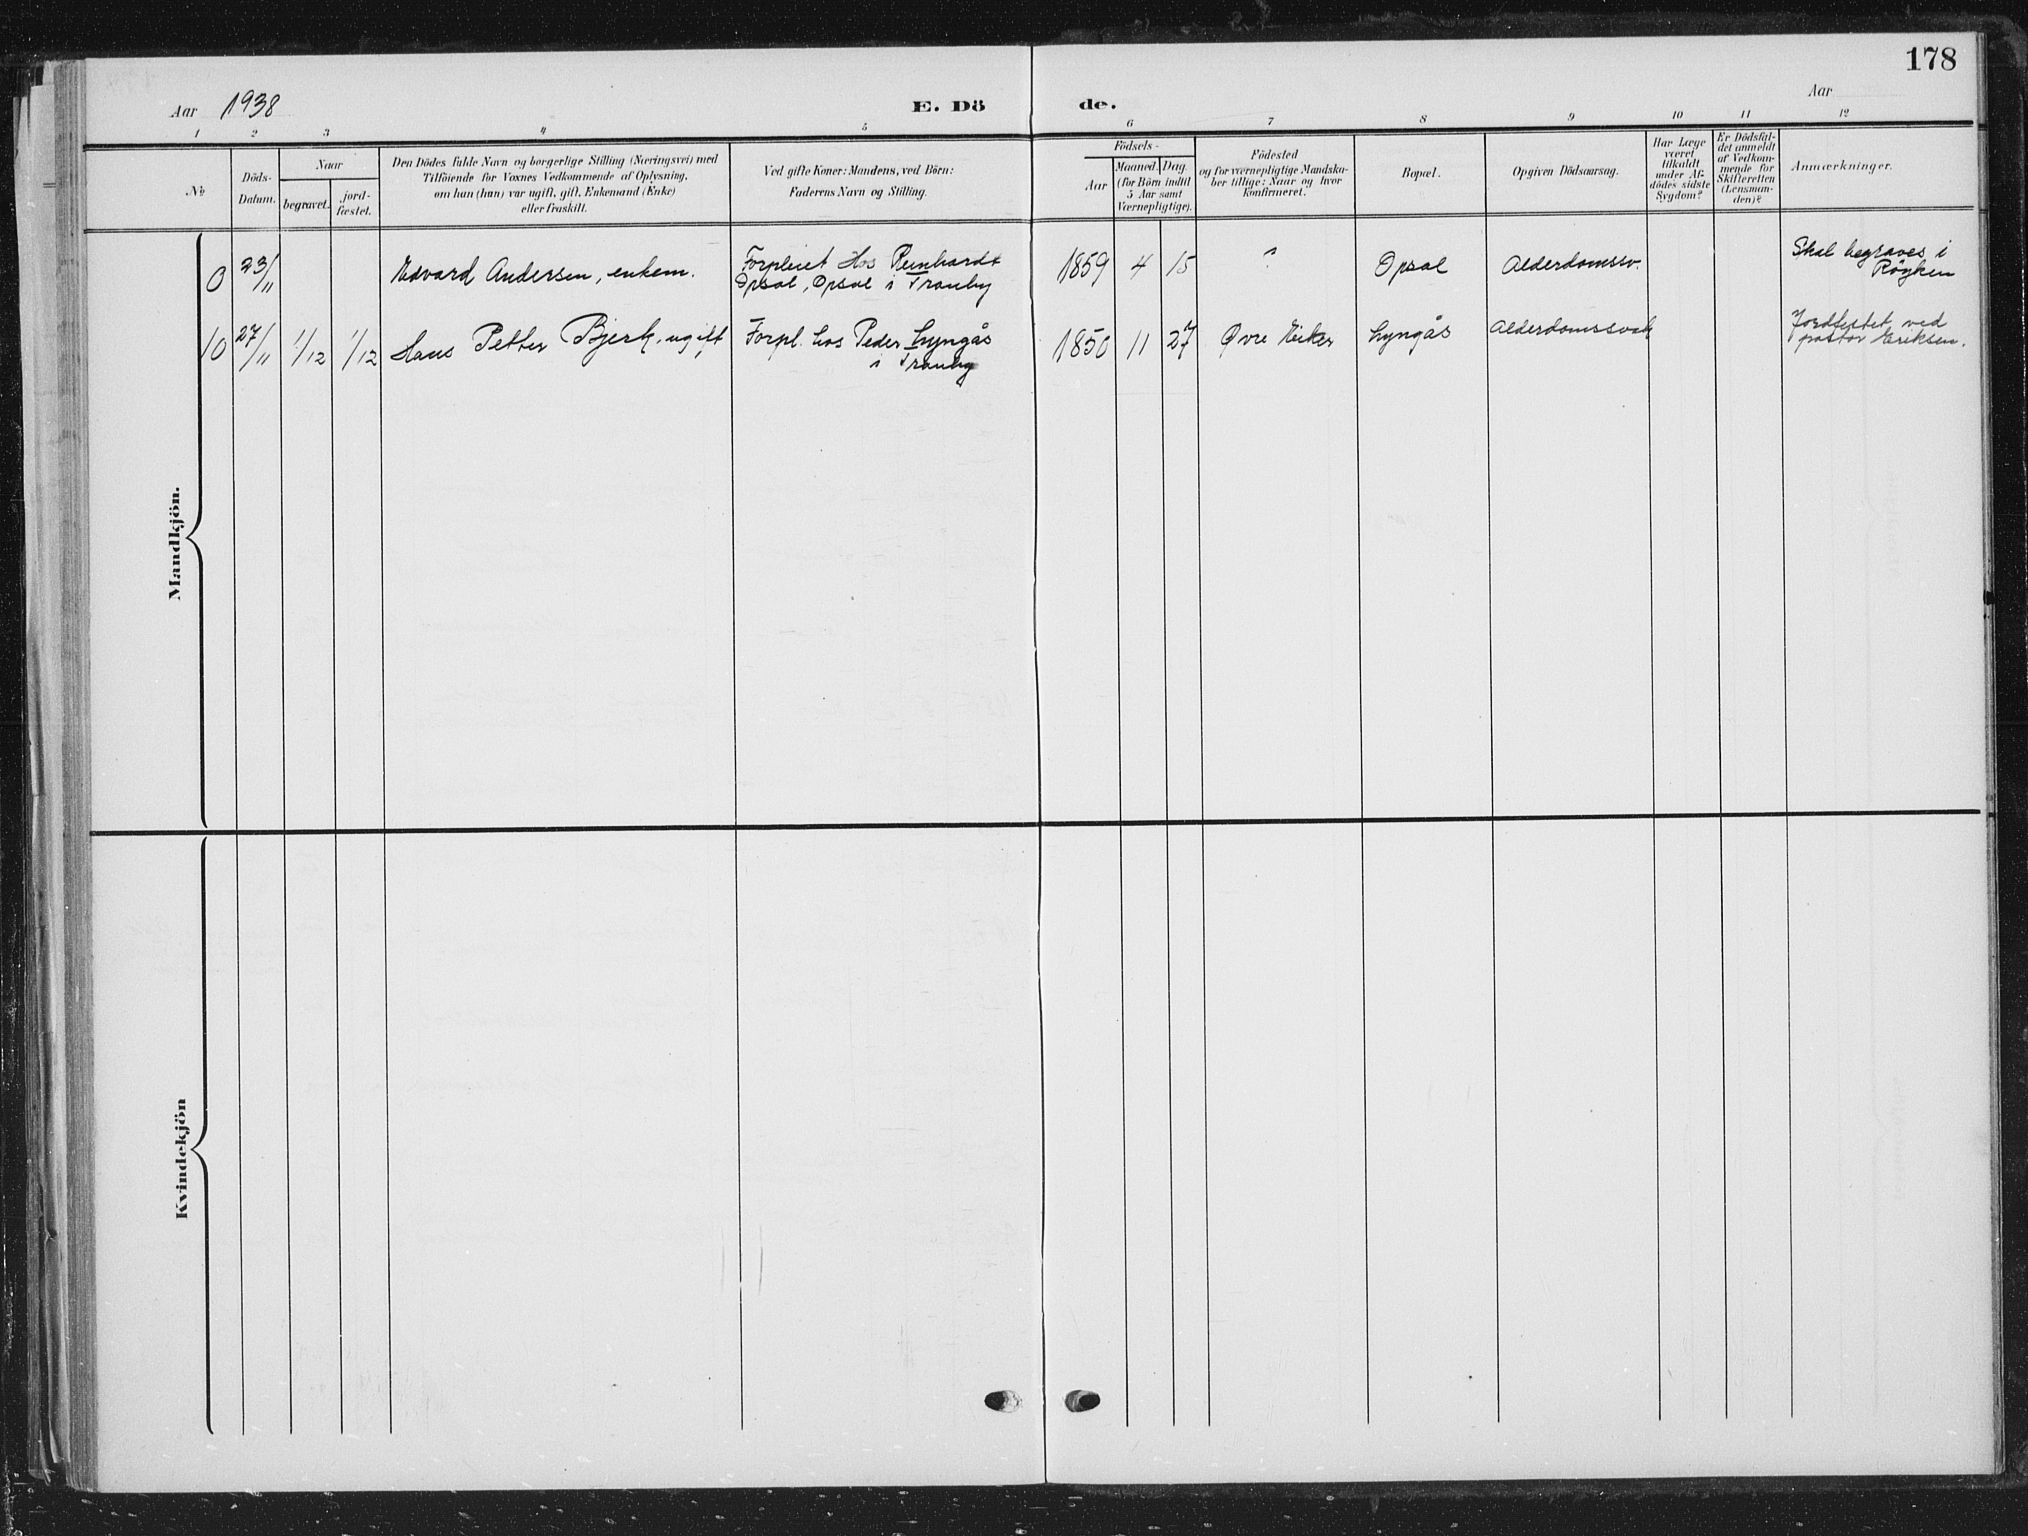 178
Aar 1938
E. Dö de.
Aar
1 2 3 4 5 6 7 8 9 10 11 12
No
Döds-
Datum.
Naar
begravet.
jord-
fæstet.
Den Dödes fulde Navn og borgerlige Stilling (Næringsvei) med
Tilföiende for Voxnes Vedkommende af Oplysning,
om han (hun) var ugift, gift, Enkemand (Enke)
eller fraskilt.
Ved gifte Koner: Mandens, ved Börn:
Faderens Navn og Stilling.
Födsels-
Aar
Maaned. Dag.
(for Börn indtil
5 Aar samt
Værnepligtige).
Födested
og for værnepligtige Mandska-
ber tillige: Naar og hvor
konfirmeret.
Bopæl.
Opgiven Dödsaarsag.
Har Læge
været
tilkaldt
under Af-
dödes sidste
Sygdom?
Er Dödsfal-
det anmeldt
af Vedkom-
mende for
Skifteretten
(Lensman-
den)?
Anmærkninger.
Mandkjön.
0 23/11 Edvard Andersen, enkem. Forpleiet Hos Reinhardt 1859 4 15 ? Opsal Alderdomssv. Skal begraves i
Opsal, Opsal i Tranby Röyken
10 27/11 1/12 1/12 Hans Petter Bjerk, ugift Forpl. hos Peder Lyngås 1850 11 27 Øvre Eiker Lyngås Alderdomssvak Jordfestet ved
i Tranby pastor Eriksen.
Kvindekjön